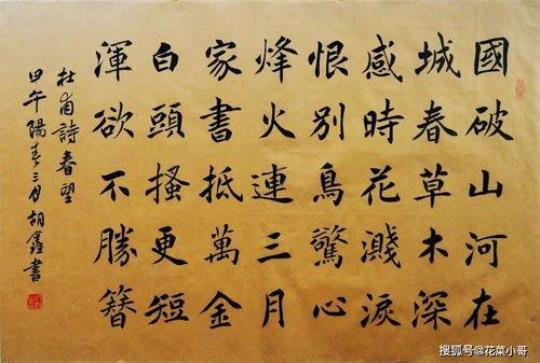 國破山河在
城春草木深
感時花濺淚
恨別鳥驚心
烽火連三月
家書抵萬金
白頭搔更短
渾欲不勝簪
杜甫詩春望
甲午陽春三月胡鑫書
搜狐号@花菜小哥